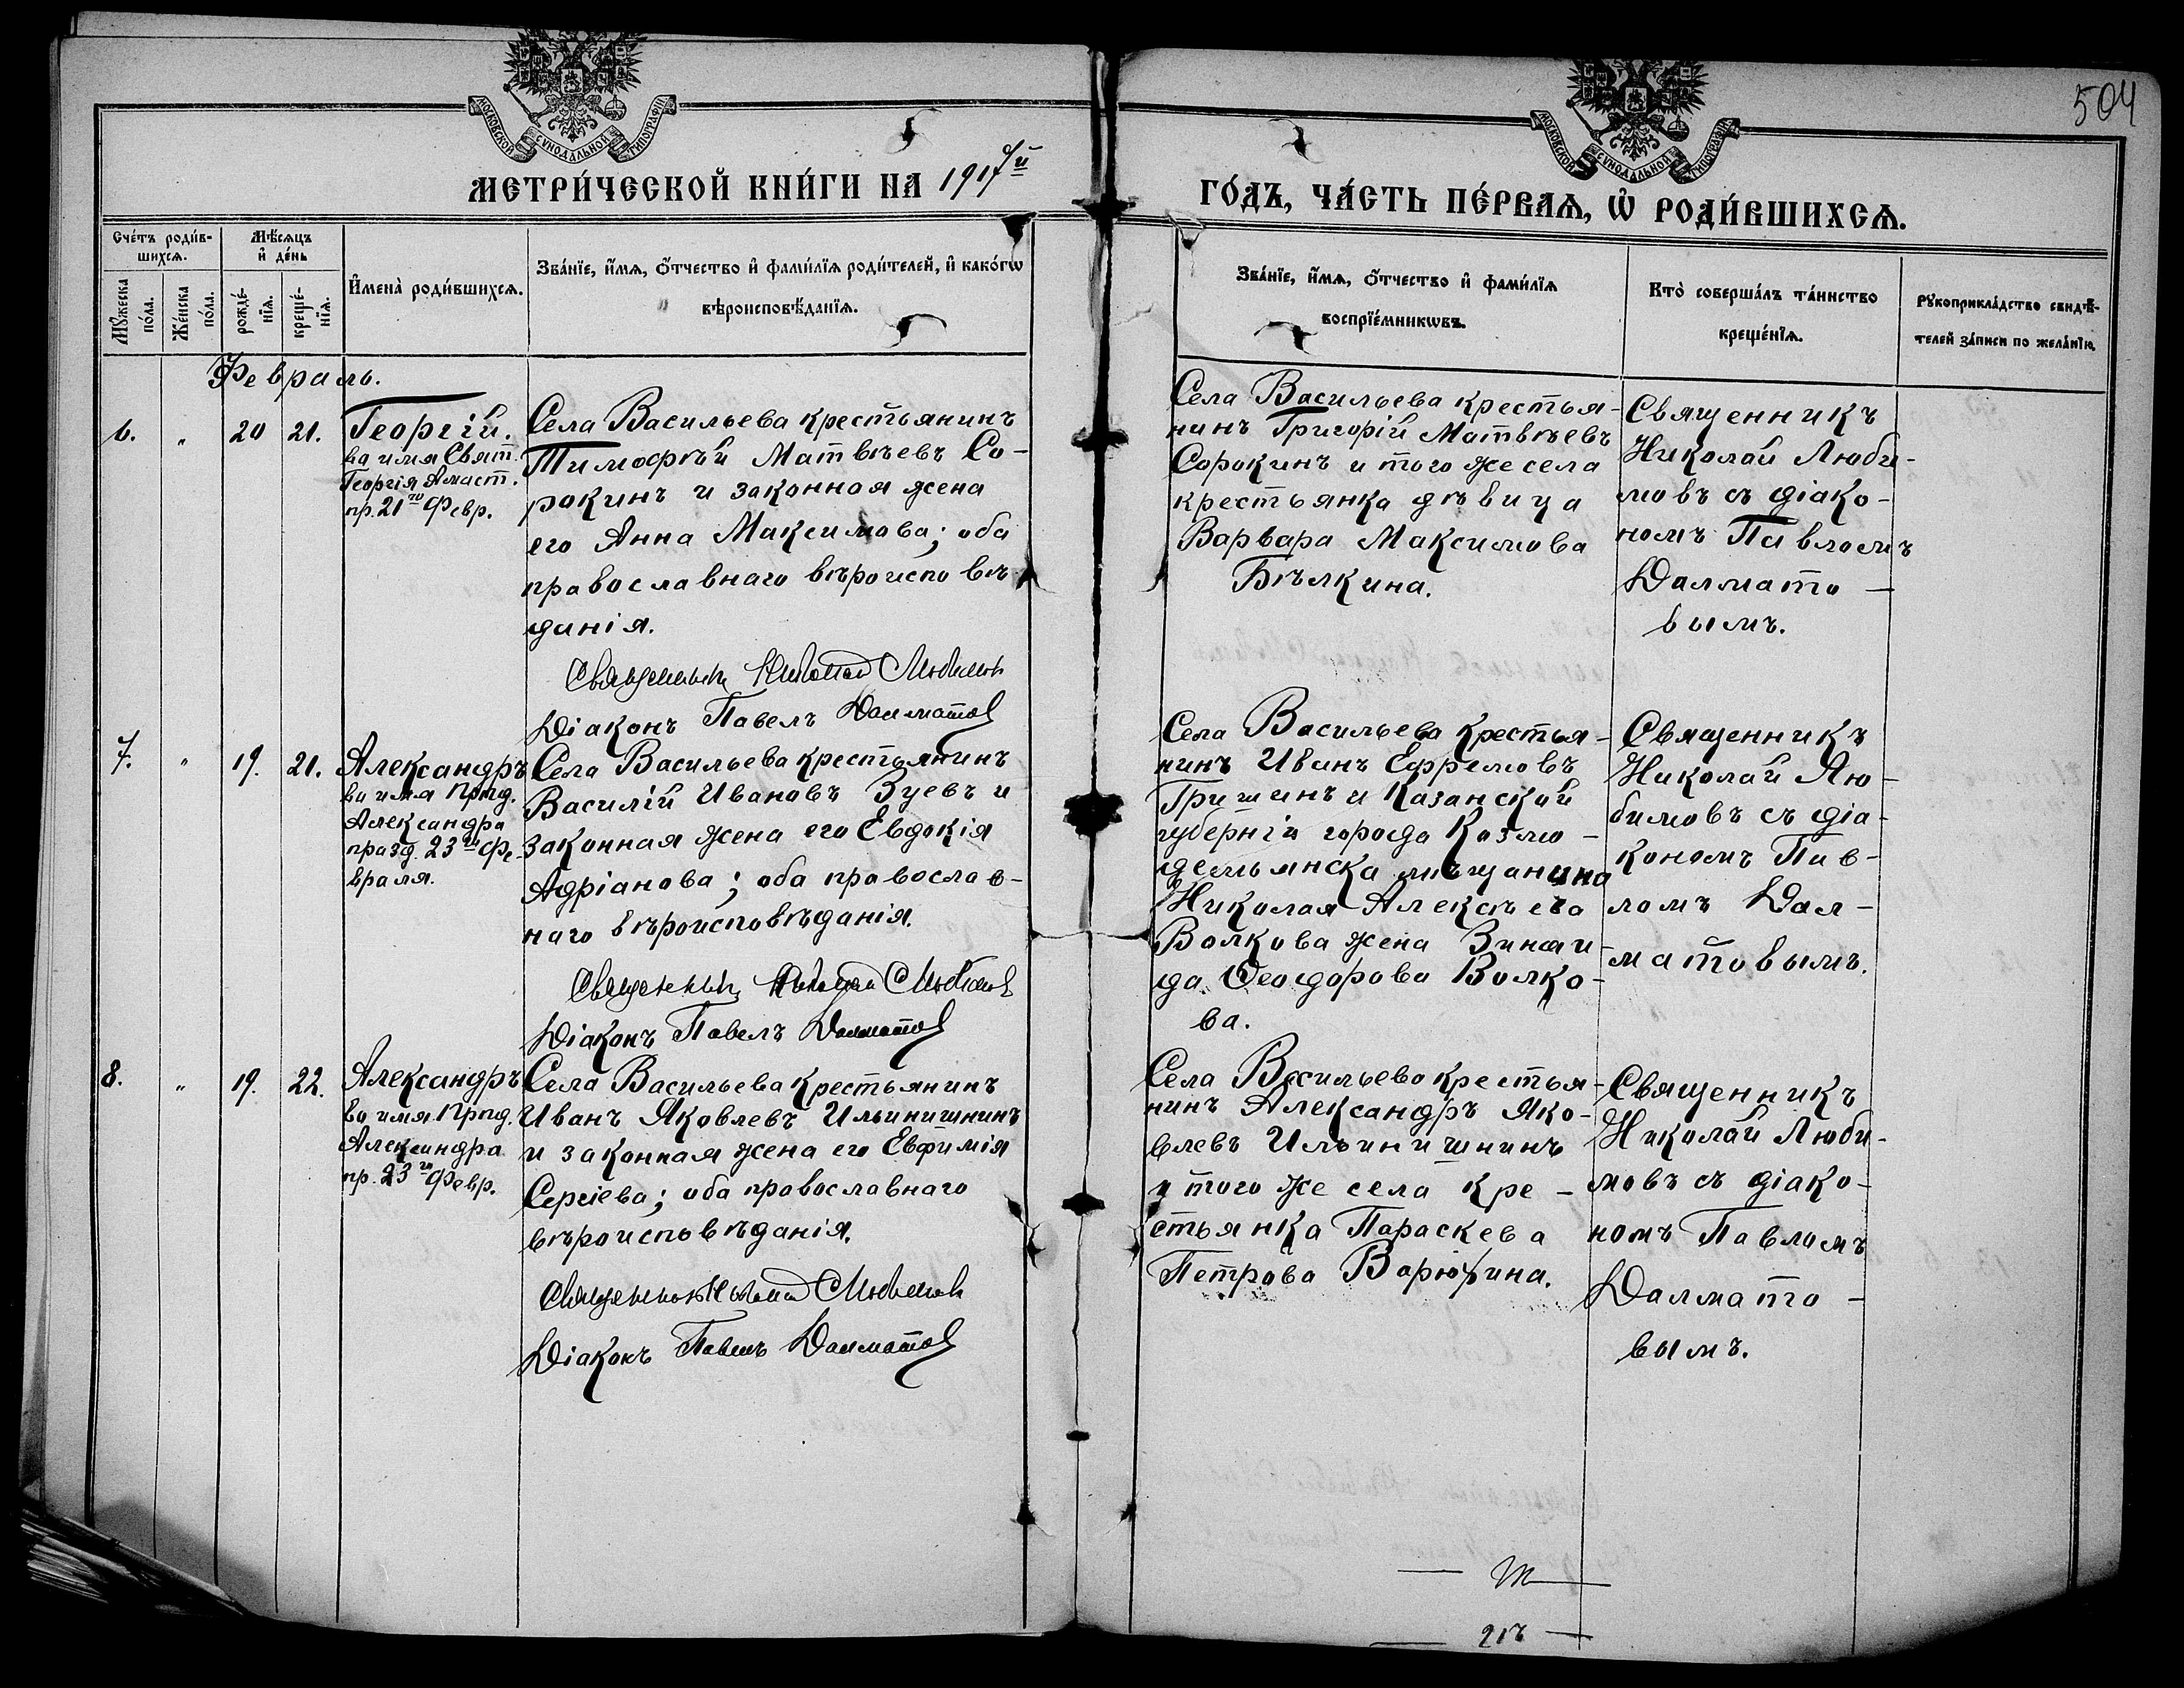 504
МОСКОВСКОЙ СѴНОДАЛЬНОЙ ТИПОГРАФІИ
МОСКОВСКОЙ СѴНОДАЛЬНОЙ ТИПОГРАФІИ
МЕТРИ́ЧЕСКОЙ КНИ́ГИ НА 1917 й
ГО́ДЪ, ЧА́СТЬ ПЕ́РВАѦ, Ѡ҆ РОДИ́ВШИХСѦ.
Сче́тъ роди́в-
шихсѧ.
Мꙋ́жеска
по́ла.
Же́нска
по́ла.
Мѣ́сѧцъ
и҆ де́нь
рожде́-
нїѧ.
креще́-
нїѧ.
И҆мена̀ роди́вшихсѧ.
Зва́нїе, и҆́мѧ, ѻ҆́тчество и҆ фами́лїѧ роди́телей, и҆ како́гѡ
вѣроисповѣ́данїѧ.
Зва́нїе, и҆́мѧ, ѻ҆́тчество и҆ фами́лїѧ
воспрїе́мникѡвъ.
Кто̀ соверша́лъ та́инство
креще́нїѧ.
Рꙋкоприкла́дство свидѣ́-
телей за́писи по жела́нїю.
Февраль.
6. " 20 21.
Георгій.
во имя Свят.
Георгія Амаст.
пр. 21го Февр.
Села Васильева крестьянинъ
Тимофѣй Матвѣевъ Со-
рокинъ и законная жена
его Анна Максимова; оба
православнаго вѣроисповѣ-
данія.
Священникъ Николай Любимов
Діаконъ Павелъ Далматов
Села Васильева крестья-
нинъ Григорій Матвѣевъ
Сорокинъ и того же села
крестьянка дѣвица
Варвара Максимова
Бѣлкина.
Священникъ
Николай Люби-
мовъ съ діако-
номъ Павломъ
Далмато-
вымъ.
7. " 19. 21.
Александръ
во имя Прпд.
Александра
празд. 23го Фе-
враля.
Села Васильева крестьянинъ
Василій Ивановъ Зуевъ и
законная жена его Евдокія
Адріанова; оба православ-
наго вѣроисповѣданія.
Священникъ Николай Любимов
Діаконъ Павелъ Далматов
Села Васильева крестья-
нинъ Иванъ Ефремовъ
Гришинъ и Казанской
губерніи города Козмо-
демьянска мѣщанина
Николая Алексѣева
Волкова жена Зинаи-
да Ѳеодорова Волко-
ва.
Священникъ
Николай Лю-
бимовъ съ діа-
кономъ Пав-
ломъ Дал-
матовымъ.
8. " 19. 22.
Александръ
во имя Прпд.
Александра
пр. 23го Февр.
Села Васильева крестьянинъ
Иванъ Яковлевъ Ильинишнинъ
и законная жена его Евфимія
Сергіева; оба православнаго
вѣроисповѣданія.
Священникъ Николай Любимов
Діаконъ Павелъ Далматов
Села Васильева крестья-
нинъ Александръ Яко-
влевъ Ильинишнинъ
и того же села кре-
стьянка Параскева
Петрова Варюхина.
Священникъ
Николай Люби-
мовъ съ діако-
номъ Павломъ
Далмато-
вымъ.